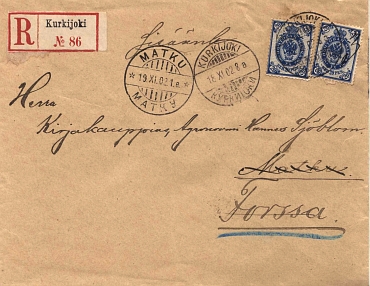 R Kurkijoki
№ 86
Sisäänk.
MATKU
19.XI.02
MATKU
KURKIJOKI
18.XI.02
Herra
Kirjakauppias, Agronoomi Hannes Sjöblom.
Matku.
Forssa.